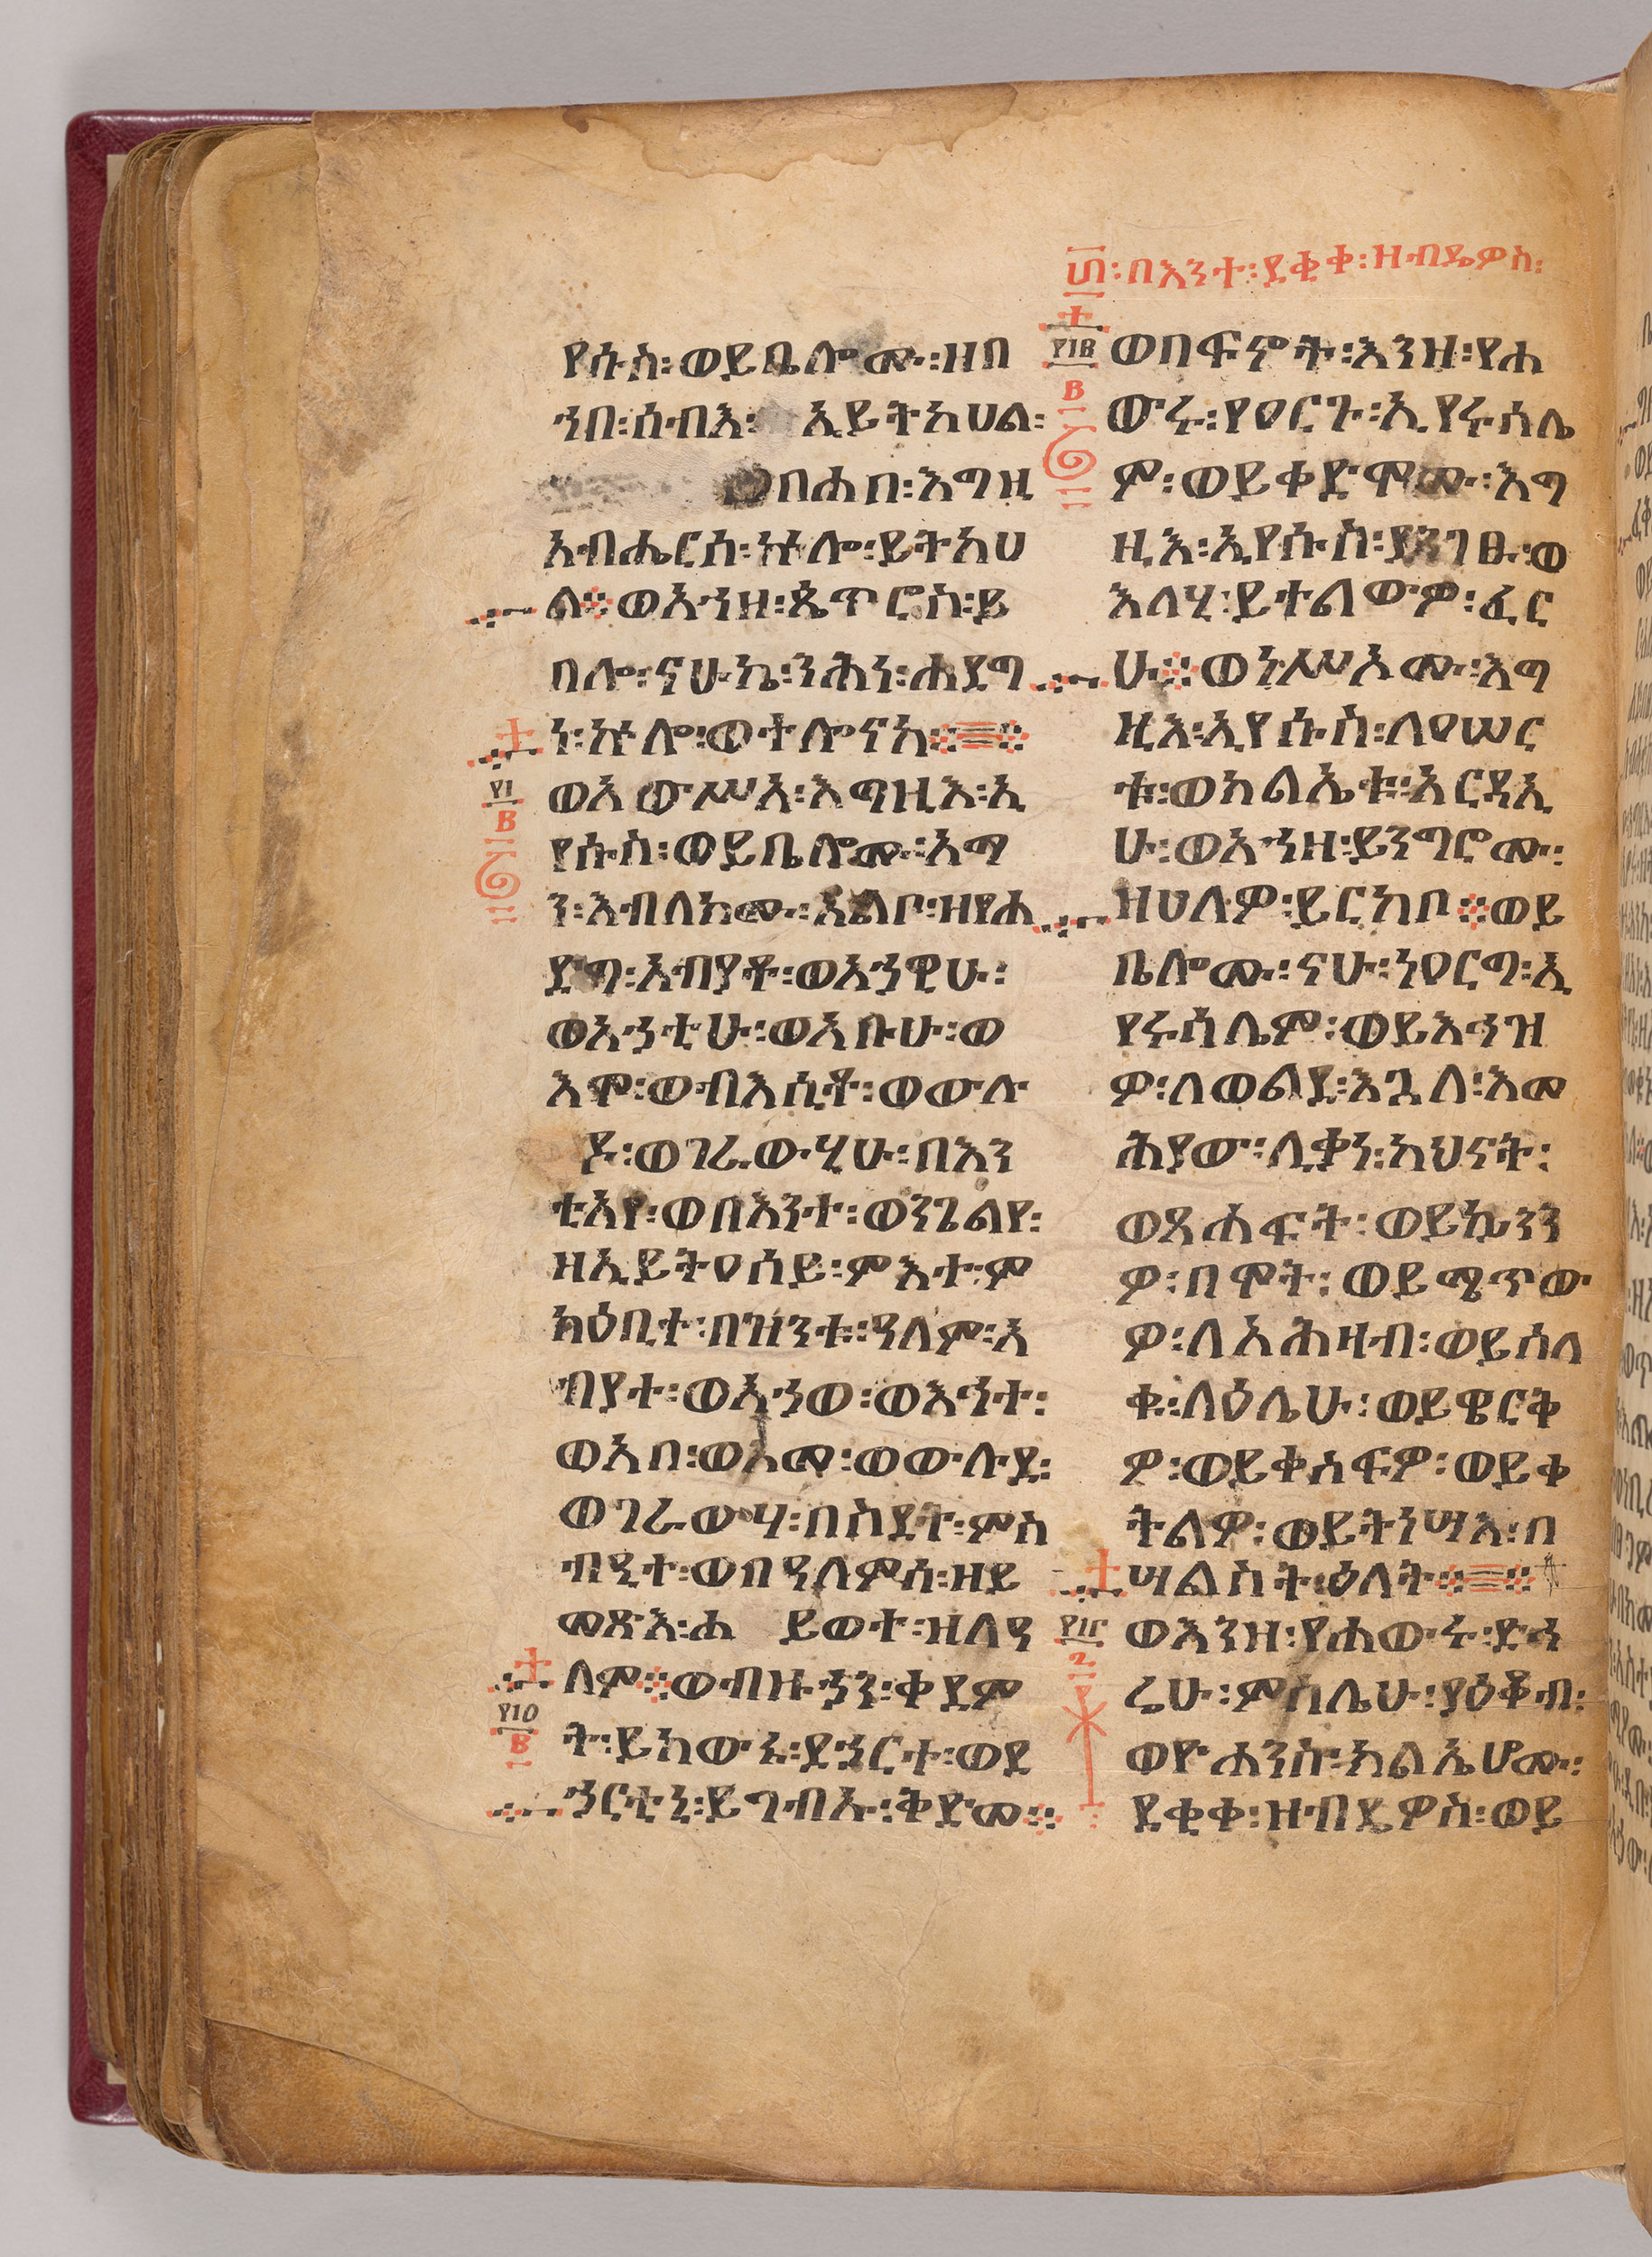 ፴፡በእንተ፡ደቂቀ፡ዘብዴዎስ፡
የሱስ፡ወይቤሎሙ፡ዘበ
ኀበ፡ሰብእ፡ኢይትከሀል፡
በሐበ፡እግዚ
አብሔርሰ፡ኵሎ፡ይትከሀ
ል፨ወአኀዘ፡ጴጥሮስ፡ይ
በሎ፡ናሁኬ፡ንሕነ፡ሐደግ
ነ፡ኵሎ፡ወተሎናከ፨
ወአውሥአ፡እግዚእ፡ኢ
የሱስ፡ወይቤሎሙ፡አማ
ን፡እብለክሙ፡አልቦ፡ዘየሐ
ድግ፡አብያቶ፡ወአኃዊሁ፡
ወአኃቲሁ፡ወአቡሁ፡ወ
እሞ፡ወብእሲቶ፡ወውሉ
ዶ፡ወገራውሂሁ፡በእን
ቲአየ፡ወበእንተ፡ወንጌልየ፡
ዘኢይትዐሰይ፡ምእተ፡ም
ክዕቢተ፡በዝንቱ፡ዓለም፡አ
ብያተ፡ወአኀወ፡ወአኅተ፡
ወአበ፡ወእመ፡ወውሉደ፡
ወገራውሃ፡በስደት፡ምስ
ብዒተ፡ወበዓለምሰ፡ዘይ
መጽእ፡ሐይወተ፡ዘለዓ
ለም፨ወብዙኀን፡ቀደም
ት፡ይከውኑ፡ደኀርተ፡ወደ
ኀርቲኒ፡ይገብኡ፡ቅድመ፨
፲፩
፪
፲፩፬
፪
፲፩፪
፪
ወበፍኖት፡እንዘ፡የሐ
ውሩ፡የዐርጉ፡ኢየሩሰሌ
ም፡ወይቀድሞሙ፡እግ
ዚእ፡ኢየሱስ፡ያንገፁ፡ወ
እለሂ፡ይተልውዎ፡ፈር
ሁ፨ወነሥአሙ፡እግ
ዚእ፡ኢየሱስ፡ለዐሠር
ቱ፡ወክልኤቱ፡አርዳኢ
ሁ፡ወአኀዘ፡ይንግሮሙ፡
ዘሀለዎ፡ይርከቦ፨ወይ
ቤሎሙ፡ናሁ፡ነዐርግ፡ኢ
የሩሳሌም፡ወይእኅዝ
ዎ፡ለወልደ፡እጓለ፡እመ
ሕያው፡ሊቃነ፡ካህናት፡
ወጸሐፍት፡ወይኴንን
ዎ፡በሞት፡ወይሜጥው
ዎ፡ለአሕዛብ፡ወይሰለ
ቁ፡ለዕሌሁ፡ወይዌርቅ
ዎ፡ወይቀስፍዎ፡ወይቀ
ትልዎ፡ወይትነሣእ፡በ
ሣልስት፡ዕለት፨
፲፩፫
ወእንዘ፡የሐውሩ፡ድኅ
ሬሁ፡ምስሌሁ፡ያዕቆብ፡
ወዮሐንስ፡ክልኤሆሙ፡
ደቂቀ፡ዘብዴዎስ፡ወይ